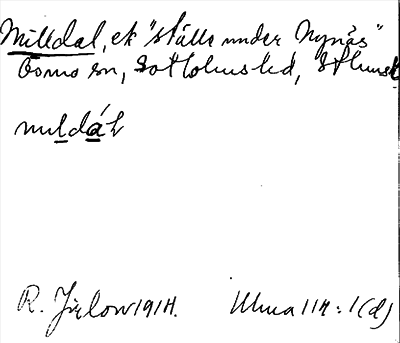 Milldal, ek "ställe under Nynäs"
Ösmo sn, Sotholms hd,
muldál
R. Jirlow 1914. Ulma 114:1(d)